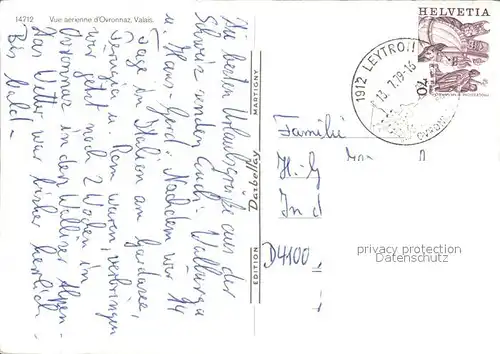 14712 Vue aerienne d'Ovronnaz, Valais.
Die besten Urlaubsgrüße aus der
Schweiz senden Euch Walburga
u. Hans-Gerd. Nachdem wir 14
Tage in Italien am Gardasee,
u. Rom waren, verbringen
wir jetzt noch 2 Wochen in
Ovronnaz in den Walliser Alpen -
Das Wetter war bisher herrlich -
Bis bald -
EDITION Darbellay MARTIGNY
HELVETIA
1912 LEYTRON
13.7.79-15
Familie
H. G
Ind
D4100
privacy protection
Datenschutz